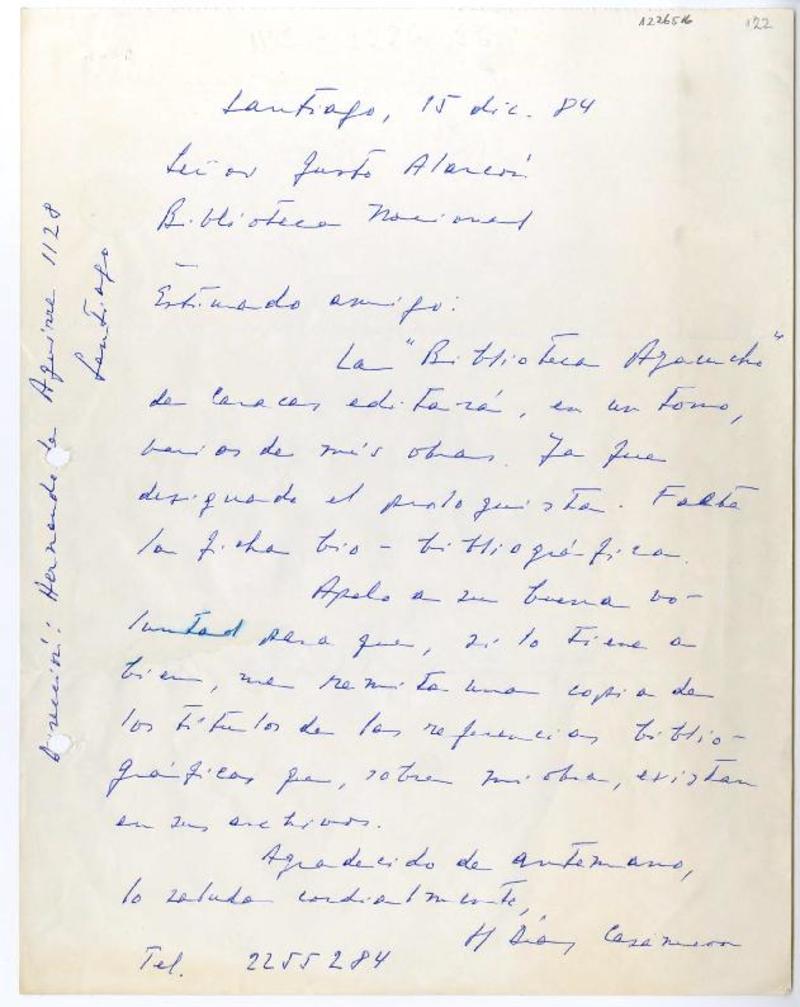 1226516
122
Santiago, 15 dic. 84
Señor Justo Alarcón
Biblioteca Nacional
Estimado amigo:
La "Biblioteca Ayacucho"
de Caracas editará, en un tomo,
varios de mis obras. Ya fue
designado el prologuista. Falta
la ficha bio-bibliográfica.
Apelo a su buena vo-
luntad para que, si lo tiene a
bien, me remita una copia de
los títulos de las referencias biblio-
gráficas que, sobre mi obra, existan
en sus archivos.
Agradecido de antemano,
lo saluda cordialmente,
H Díaz Casanueva
Tel. 2255284
Dirección: Hernando de Aguirre 1128
Santiago